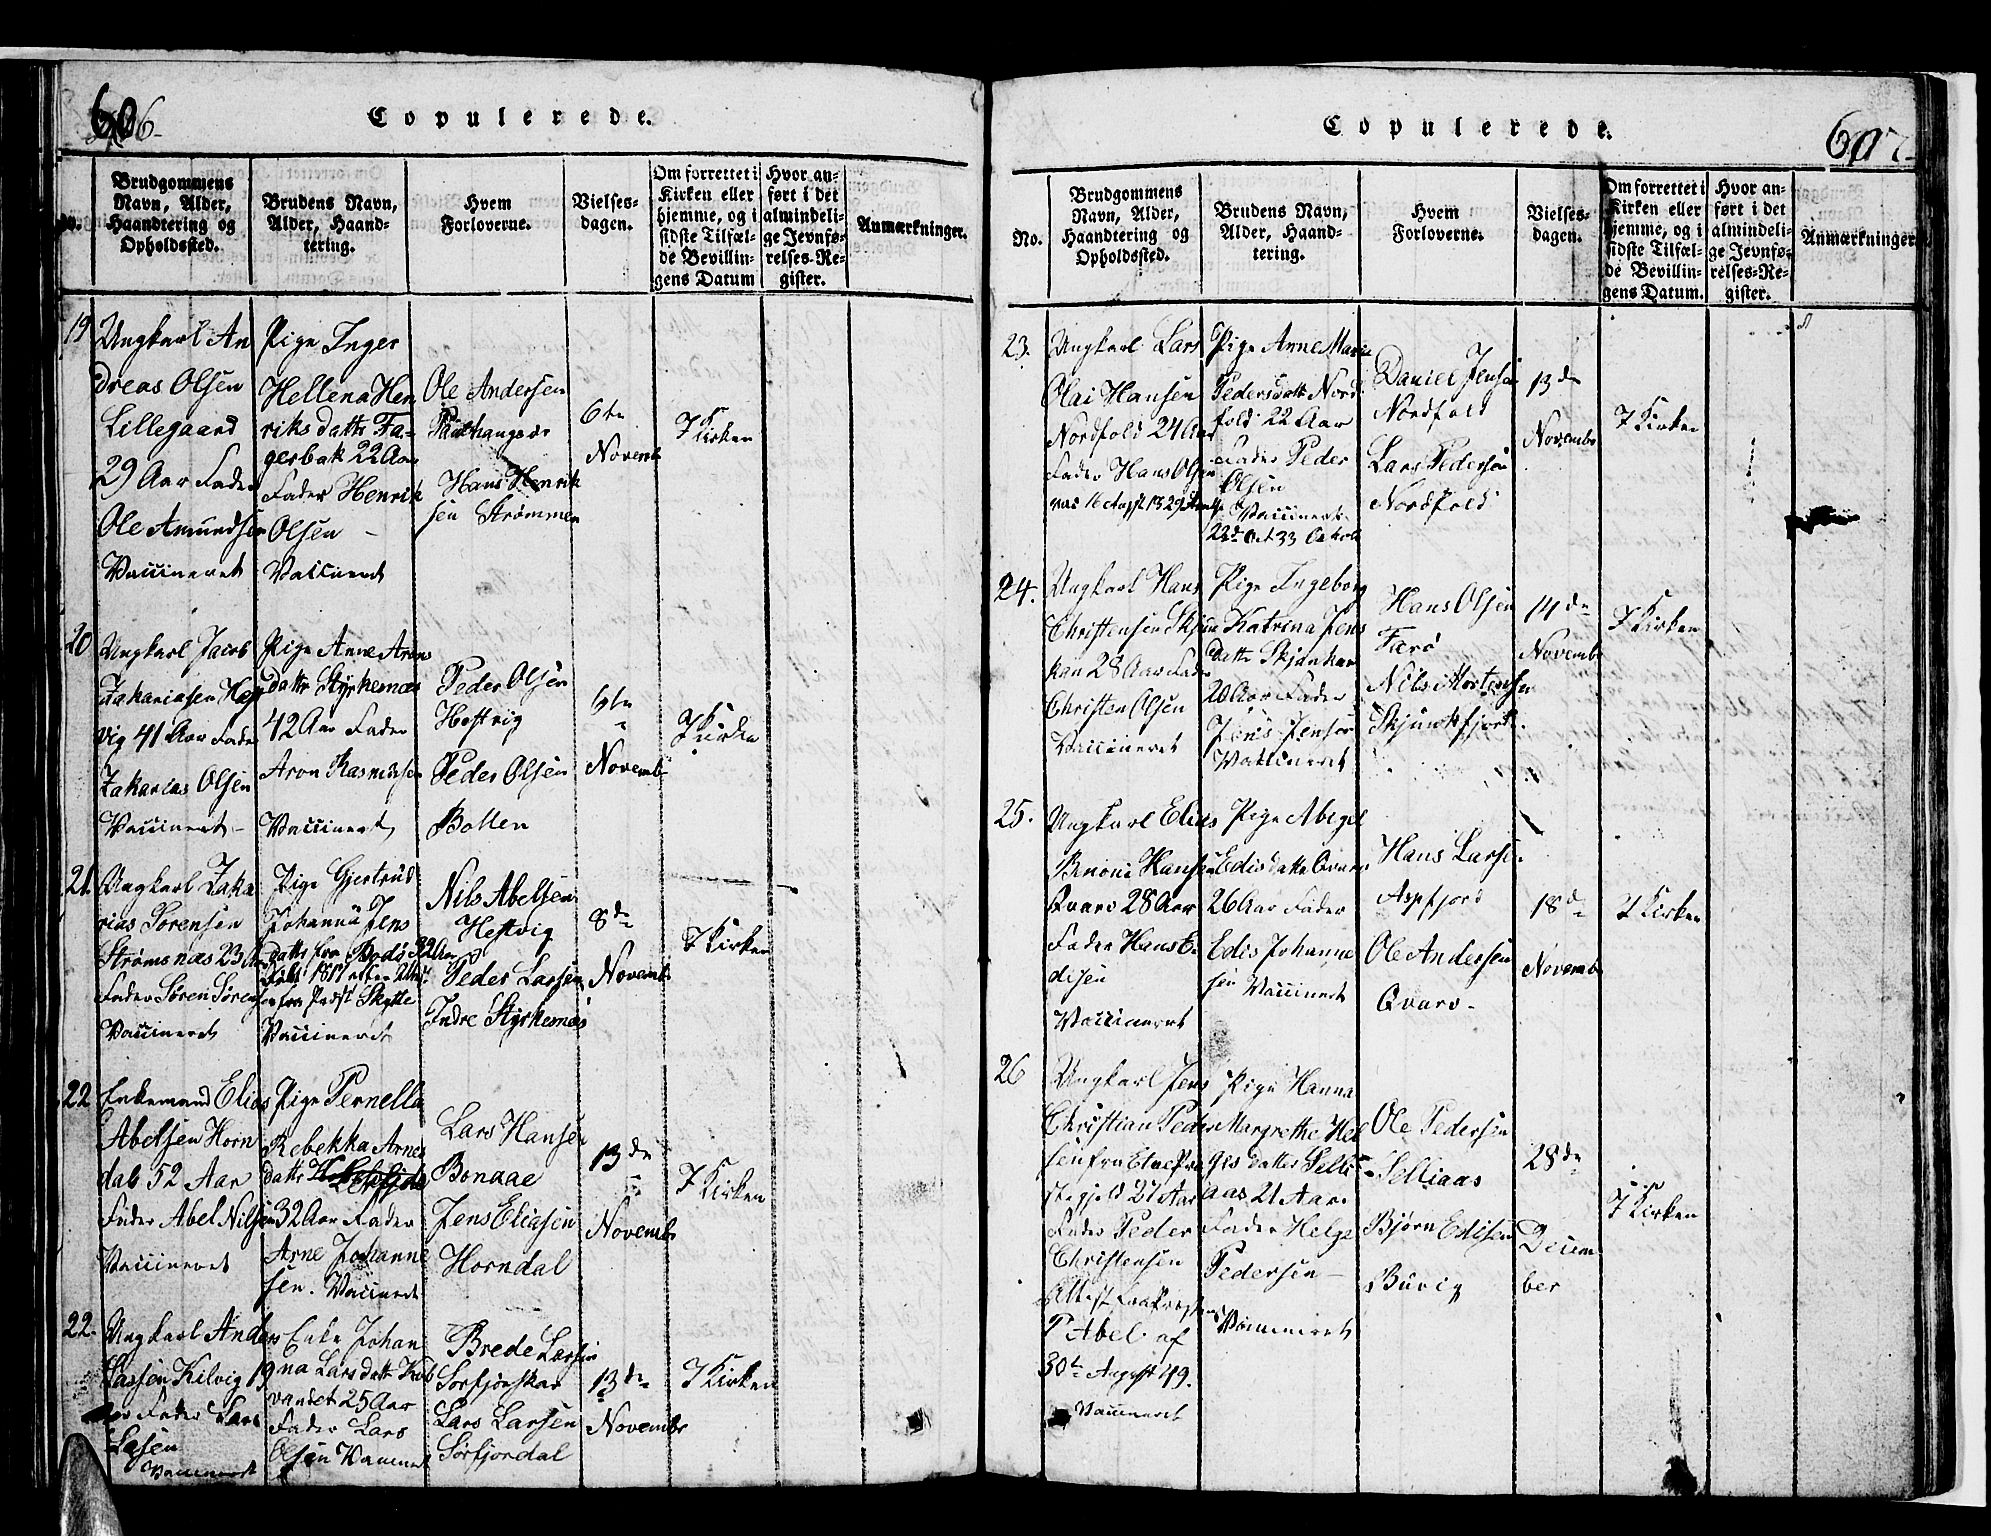 606
Copulerede.
No.
Brudgommens
Navn, Alder,
Haandtering og
Opholdssted.
Brudens Navn,
Alder, Haand-
tering.
Hvem
Forloverne.
Vielses-
dagen.
Om forrettet i
Kirken eller
hjemme, og i
sidste Tilfæl-
de Bevillin-
gens Datum
Hvor an-
ført i det
almindeli-
ge Jevnfø-
relses-Re-
gister.
Anmærkninger.
19
Ungkarl An
dreas Olsen
Lillegaard
29 Aar Fader
Ole Amundsen
Vaccineret
Pige Inger
Hellena Hen
riks datter Fa-
gerbak 22 Aar
Fader Henrik
Olsen –
Vaccineret
Ole Andersen
Hans Henrik
sen Strømmen
6te
Novemb
I Kirken
20
Ungkarl Jacob
Zakariasen Hest
vig 41 Aar Fader
Zakarias Olsen
Vaccineret –
Pige Anne Arons
datter Styrkesnæs
42 Aar Fader
Aron Rasmusen
Vaccineret
Peder Olsen
Hestvig
Peder Olsen
Botten
6te
Novemb
I Kirken
21.
Ungkarl Zaka
rias Sørensen
Strømsnæs 23 Aar
Fader Søren Sørensen
Vaccineret
Pige Gjertrud
Johanna Jens
datter fra Bodø 32 Aar
fra Præst Skytte
Vaccineret
Nils Abelsen
Hestvig
Peder Larsen
Indre Styrkesnæs
8de
Novemb
I Kirken
22
Enkemand Elias
Abelsen Horn
dal 52 Aar
Fader Abel Nilsen
Vaccineret
Pige Pernella
Rebekka Arnes
datter
32 Aar Fader
Arne Johanne
sen. Vaccineret
Lars Hansen
Bonaae
Jens Eliasen
Horndal
13de
Novemb
I Kirken
22.
Ungkarl Anders
Larsen Kilvig 19
Aar Fader Lars
Larsen
Vaccineret
Enke Johan
na Lars datt Kob
vandet 25 Aar
Fader Lars
Olsen Vaccineret
Brede Larsen
Sørfjordskar
Lars Larsen
Sørfjordal
13de
Novembr
I Kirken
607
Copulerede.
No.
Brudgommens
Navn, Alder,
Haandtering og
Opholdssted.
Brudens Navn,
Alder, Haand-
tering.
Hvem
Forloverne.
Vielses-
dagen.
Om forrettet i
Kirken eller
hjemme, og i
sidste Tilfæl-
de Bevillin-
gens Datum.
Hvor an-
ført i det
almindeli-
ge Jevnfø-
relses-Re-
gister.
Anmærkninger
23.
Ungkarl Lars
Olai Hansen
Nordfold 24 Aar
Fader Hans Olsen
vac 16 Augst 1829
Pige Anne Marie
Pedersdatt Nord
fold 22 Aar
Fader Peder
Olsen
Vaccineret
22de Oct 33
Daniel Jensen
Nordfold
Lars Pedersen
Nordfold
13de
Novembr
I Kirken
24.
Ungkarl Hans
Christensen Skjun
kan 28 Aar Fader
Christen Olsen
Vaccineret
Pige Ingeborg
Katrina Jens
datter Skjunkan
20 Aar Fader
Jens Jensen
Vaccineret
Hans Olsen
Færø
Nils Mortensen
Skjunkfjord.
14de
Novembr
I Kirken
25.
Ungkarl Elias
Benoni Hansen
Qvarv 28 Aar
Fader Hans E-
disen
Vaccineret
Pige Abegel
Edis datter Qvarv
26 Aar Fader
Edis Johanne
sen Vaccineret
Hans Larsen
Aspfjord
Ole Andersen
Qvarv –
18de
Novemb
I Kirken
26
Ungkarl Jens
Christian Peder
sen fra Etne Præ
stegjeld 27 Aar
Fader Peder
Christensen
Attest fra Præsten
P Abel af
30te August 49.
Vaccineret
Pige Hanna
Margrethe Hel
ges datter Selli
aas 21 Aar
Fader Helge
Pedersen –
Vaccineret
Ole Pedersen
Selliaas
Bjørn Edisen
Buvig
28de
Decem
ber
I Kirken